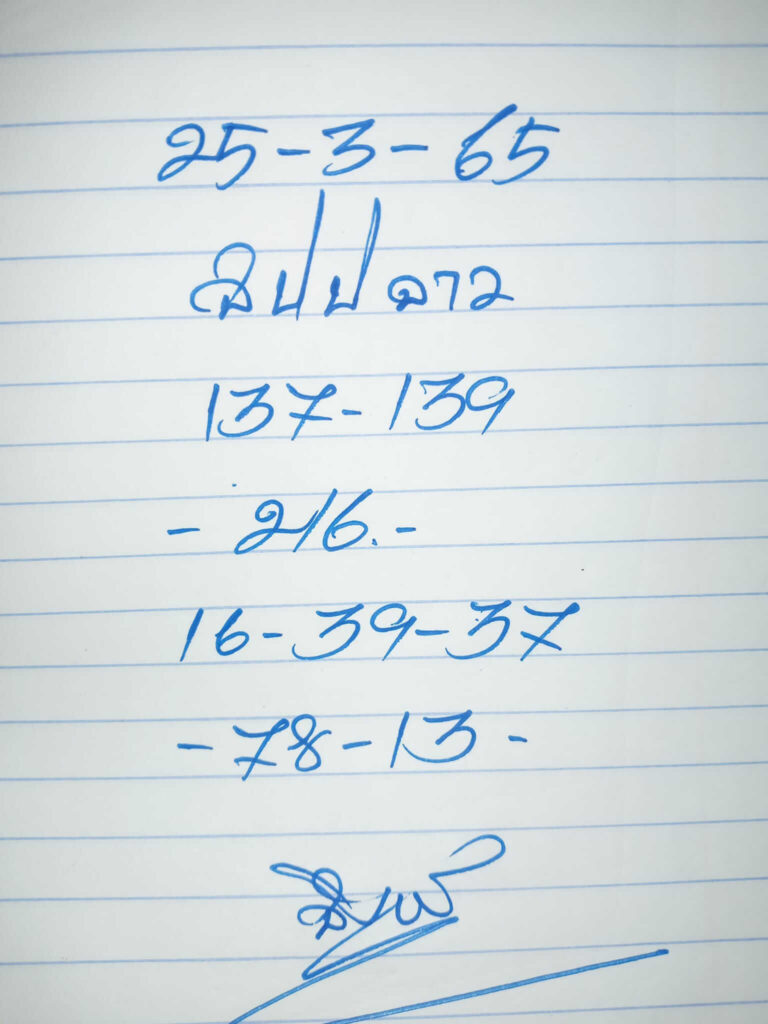 25-3-65
สปป ลาว
137-139
- 216.-
16-39-37
- 78-13 -